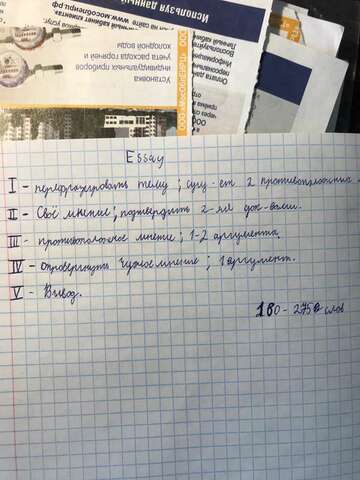 Используя данный
www.мособлеирц.рф
Установка
индивидуальных приборов
учета расхода горячей и
холодной воды
Оплата
Информация
Essay
I - перефразировать тему; сущ-ет 2 противоположных
II - Своё мнение; подтвердить 2-мя док-вами.
III - противоположное мнение; 1-2 аргумента.
IV - опровергнуть чужое мнение; 1 аргумент.
V - Вывод.
180 - 275 слов